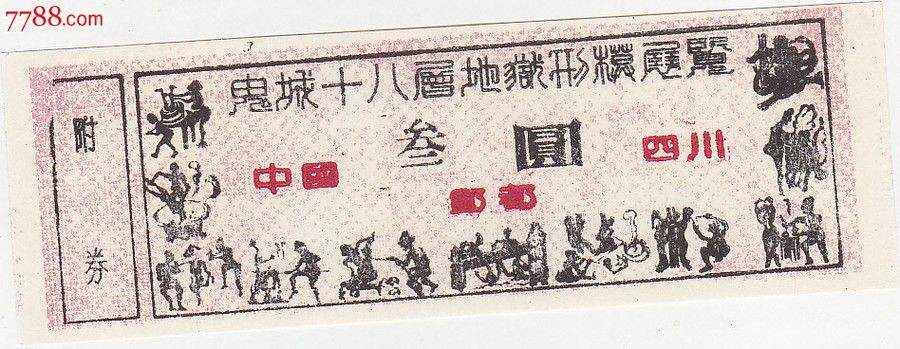 7788.com
鬼城十八層地獄刑模展覽
叁圓
中国
四川
酆都
附券